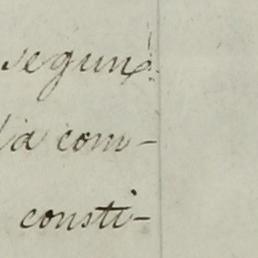 segun
la com-
consti-